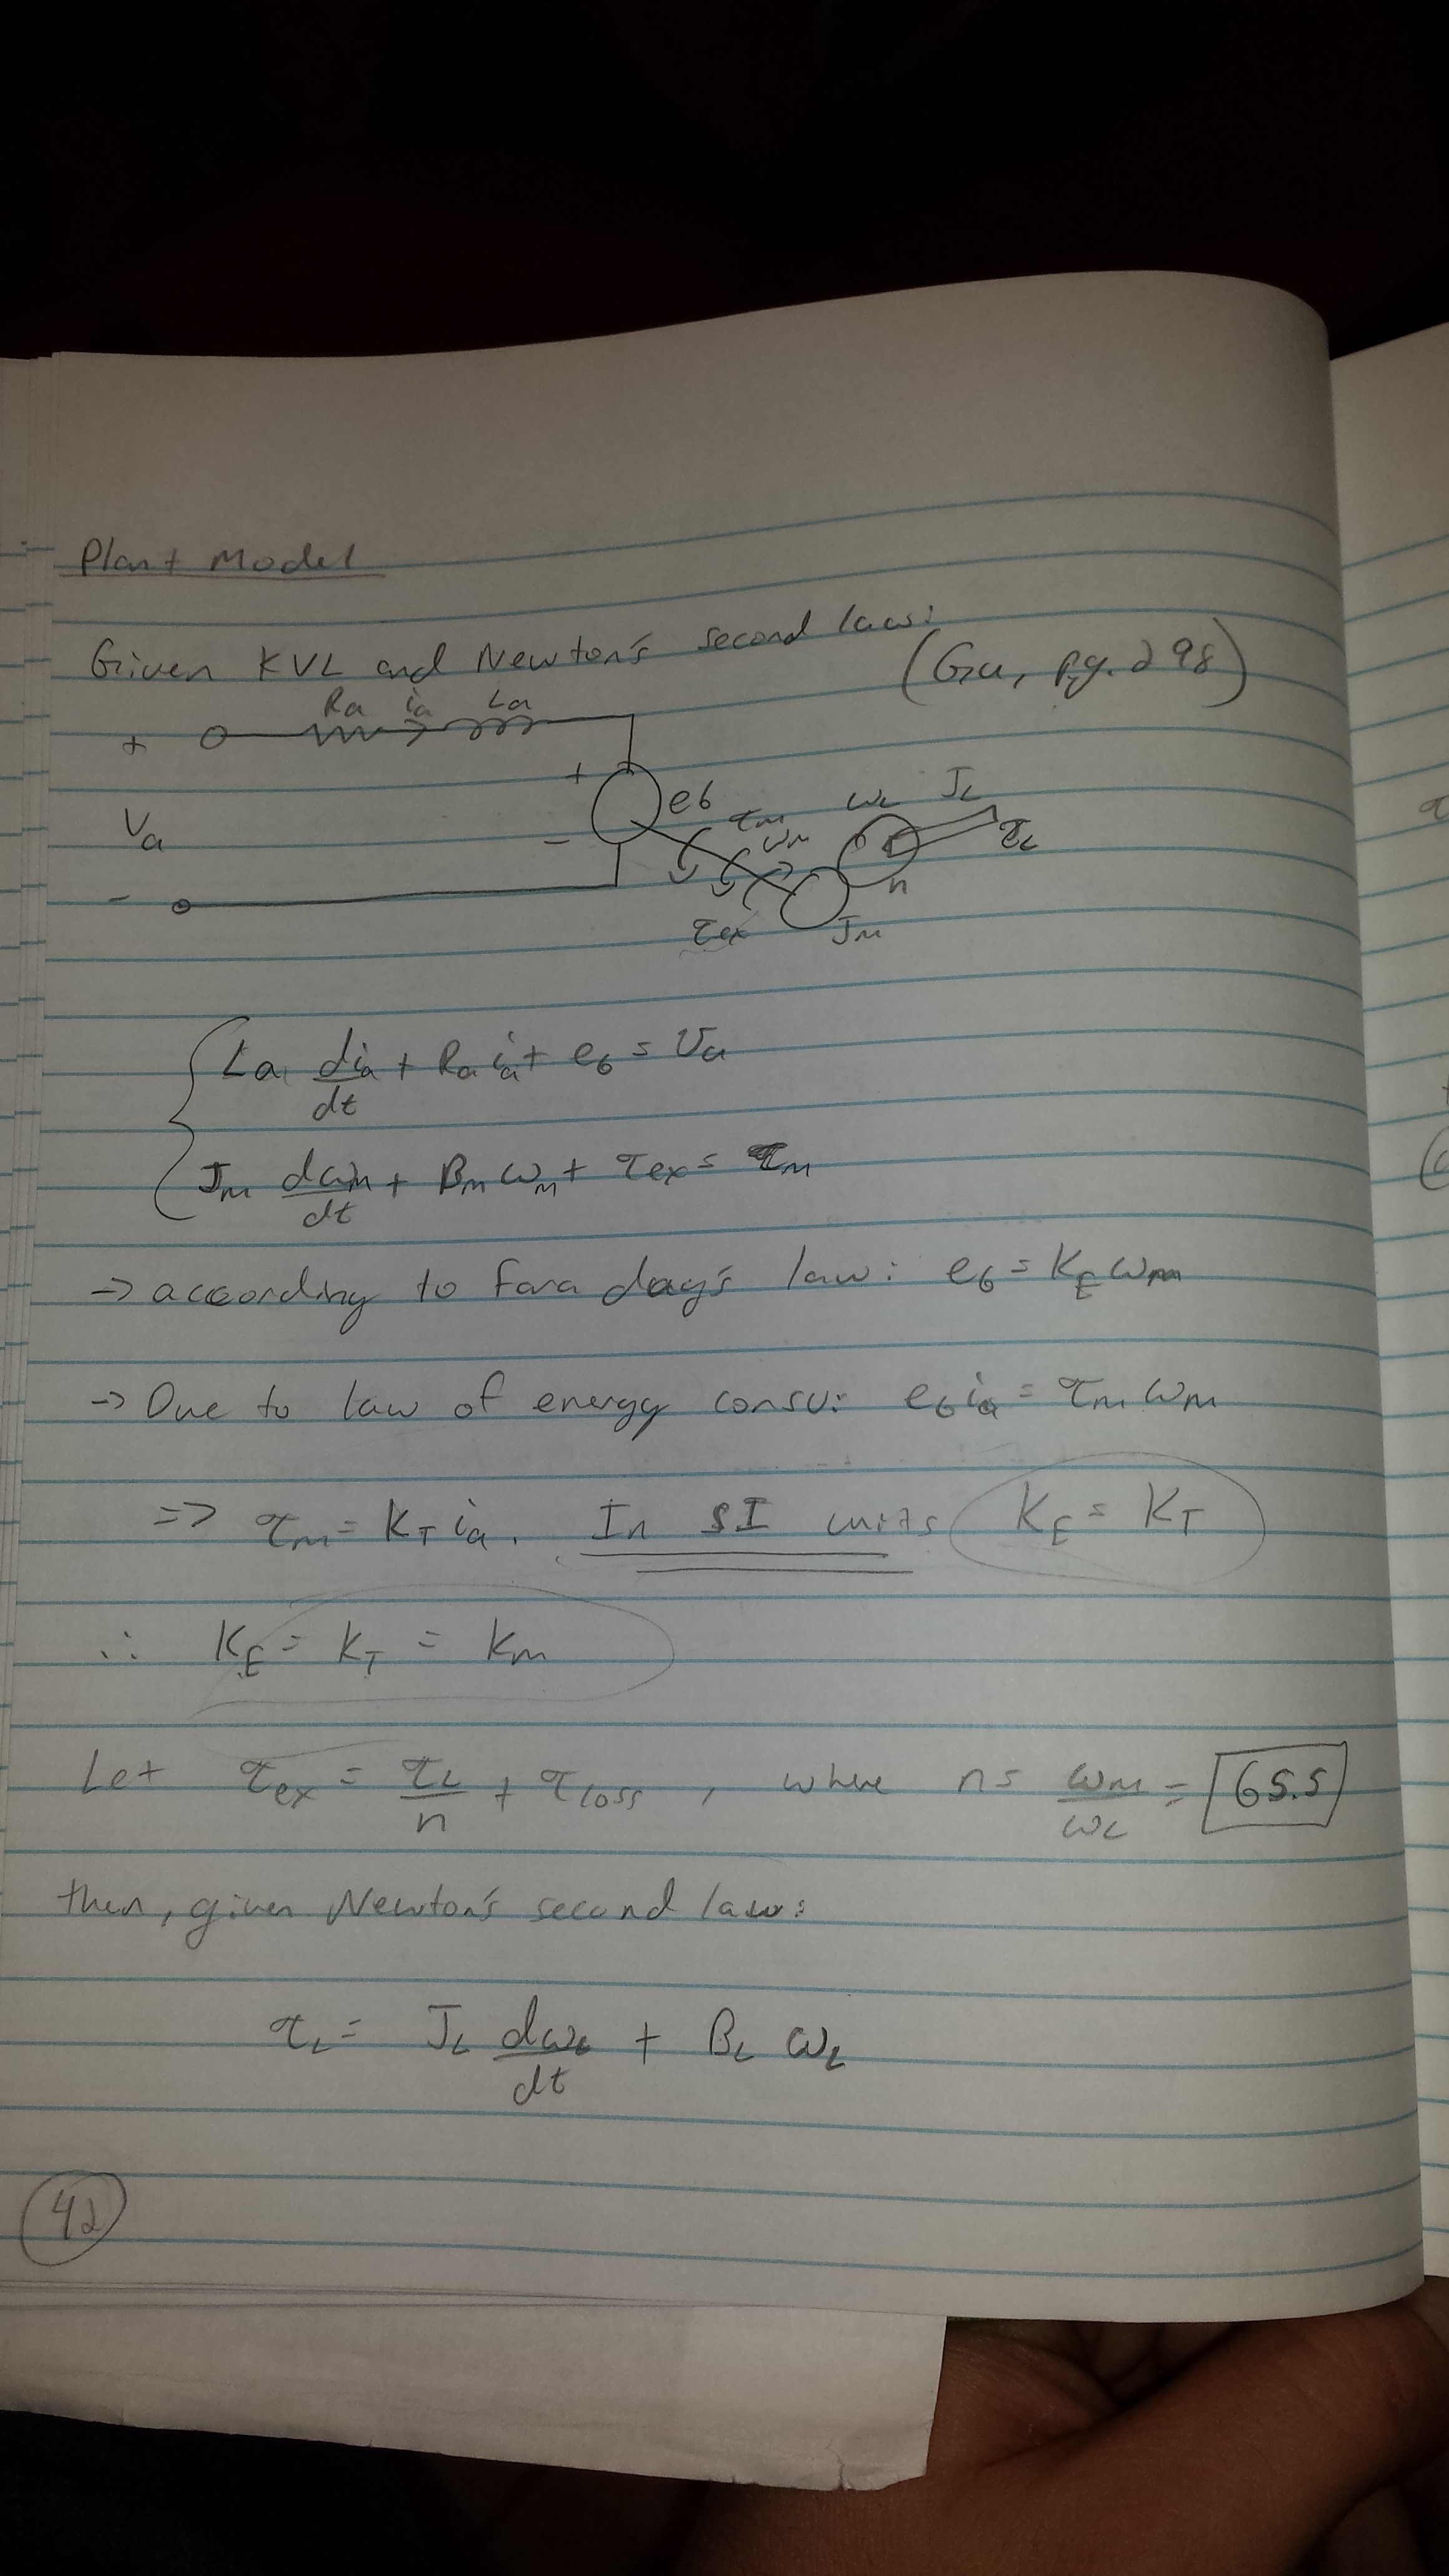 Plant Model
Given KVL and Newton's second law:
(Gu, pg. 298)
Ra ia La
+
+ eb
Va
-
τm ωm ωL JL τL
n
-
τex Jm
La dia/dt + Ra ia + eb = Va
Jm dωm/dt + Bm ωm + τex = τm
-> according to Faraday's law: eb = KE ωm
-> Due to law of energy consv: eb ia = τm ωm
=> τm = KT ia. In SI units KE = KT
∴ KE = KT = Km
Let τex = τL/n + τloss, where n = ωm/ωL = 65.5
then, given Newton's second law:
τL = JL dωL/dt + BL ωL
42